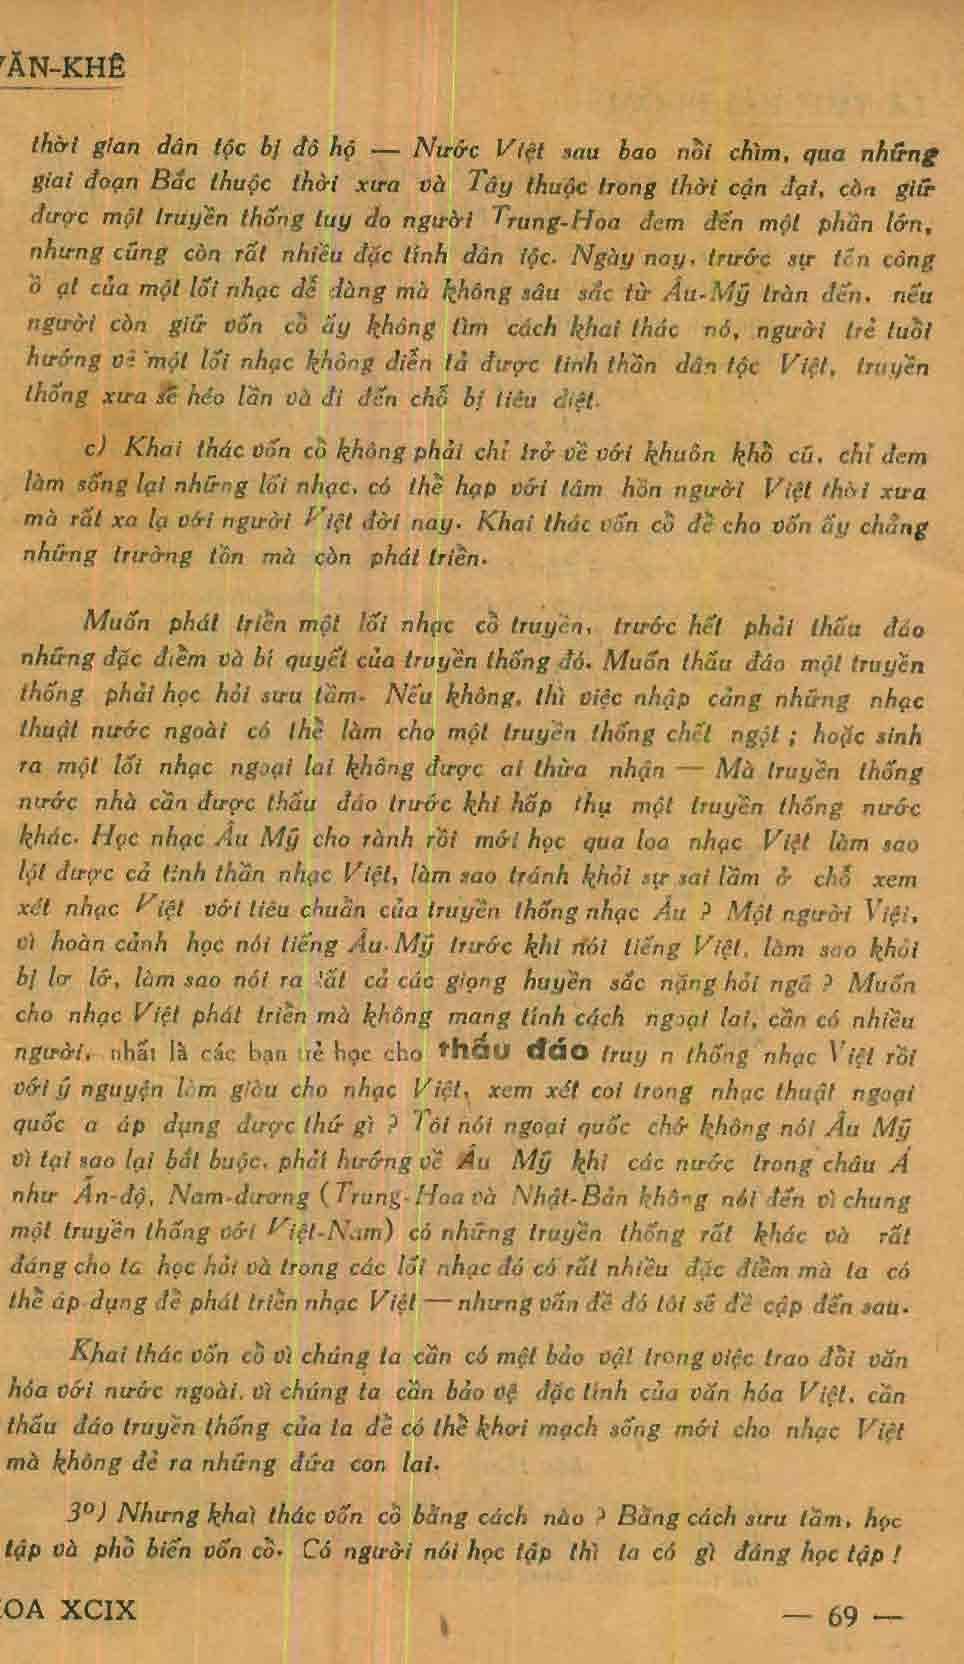 VĂN-KHÊ
thời gian dân tộc bị đô hộ — Nước Việt sau bao nồi chìm, qua những
giai đoạn Bắc thuộc thời xưa và Tây thuộc trong thời cận đại, còn giữ
được một truyền thống tuy do người Trung-Hoa đem đến một phần lớn,
nhưng cũng còn rất nhiều đặc tính dân tộc. Ngày nay, trước sự tấn công
ồ ạt của một lối nhạc dễ dàng mà không sâu sắc từ Âu-Mỹ tràn đến, nếu
người còn giữ vốn cồ ấy không tìm cách khai thác nó, người trẻ tuồi
hướng về một lối nhạc không diễn tả được tinh thần dân tộc Việt, truyền
thống xưa sẽ héo lần và đi đến chỗ bị tiêu diệt.
c) Khai thác vốn cồ không phải chỉ trở về với khuôn khồ cũ, chỉ đem
làm sống lại những lối nhạc, có thề hạp với tâm hồn người Việt thời xưa
mà rất xa lạ với người Việt đời nay. Khai thác vốn cồ đề cho vốn ấy chẳng
những trường tồn mà còn phát triền.
Muốn phát triền một lối nhạc cồ truyền, trước hết phải thấu đáo
những đặc điềm và bí quyết của truyền thống đó. Muốn thấu đáo một truyền
thống phải học hỏi sưu tầm. Nếu không, thì việc nhập cảng những nhạc
thuật nước ngoài có thề làm cho một truyền thống chết ngột ; hoặc sinh
ra một lối nhạc ngoại lai không được ai thừa nhận — Mà truyền thống
nước nhà cần được thấu đáo trước khi hấp thụ một truyền thống nước
khác. Học nhạc Âu Mỹ cho rành rồi mới học qua loa nhạc Việt làm sao
lột được cả tinh thần nhạc Việt, làm sao tránh khỏi sự sai lầm ở chỗ xem
xét nhạc Việt với tiêu chuần của truyền thống nhạc Âu ? Một người Việt,
vì hoàn cảnh học nói tiếng Âu-Mỹ trước khi nói tiếng Việt, làm sao khỏi
bị lơ lớ, làm sao nói ra tất cả các giọng huyền sắc nặng hỏi ngã ? Muốn
cho nhạc Việt phát triền mà không mang tính cách ngoại lai, cần có nhiều
người, nhất là các bạn trẻ học cho thấu đáo truy n thống nhạc Việt rồi
với ý nguyện làm giàu cho nhạc Việt, xem xét coi trong nhạc thuật ngoại
quốc a áp dụng được thứ gì ? Tôi nói ngoại quốc chớ không nói Âu Mỹ
vì tại sao lại bắt buộc, phải hướng về Âu Mỹ khi các nước trong châu Á
như Ấn-độ, Nam-dương (Trung-Hoa và Nhật-Bản không nói đến vì chung
một truyền thống với Việt-Nam) có những truyền thống rất khác và rất
đáng cho ta học hỏi và trong các lối nhạc đó có rất nhiều đặc điềm mà ta có
thề áp-dụng đề phát triền nhạc Việt — nhưng vấn đề đó tôi sẽ đề cập đến sau.
Khai thác vốn cồ vì chúng ta cần có một bảo vật trong việc trao đồi văn
hóa với nước ngoài, vì chúng ta cần bảo vệ đặc tính của văn hóa Việt, cần
thấu đáo truyền thống của ta đề có thề khơi mạch sống mới cho nhạc Việt
mà không đẻ ra những đứa con lai.
3º) Nhưng khai thác vốn cồ bằng cách nào ? Bằng cách sưu tầm, học
tập và phồ biến vốn cồ. Có người nói học tập thì ta có gì đáng học tập !
HOA XCIX
— 69 —